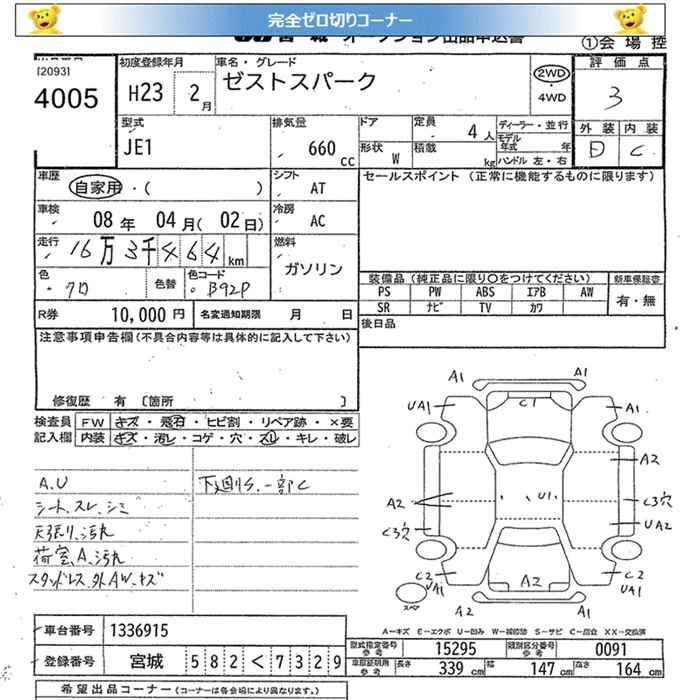 完全ゼロ切りコーナー
宮城 オークション出品申込書
①会場控
[2093]
4005
初度登録年月
H23 2月
車名・グレード
ゼストスパーク
2WD
・
4WD
評価点
3
外装 内装
D C
型式
JE1
排気量
660 cc
ドア
形状 W
定員 4人
積載 kg
ディーラー・並行
モデル年式 年
ハンドル 左・右
車歴
自家用・( )
シフト
AT
セールスポイント (正常に機能するものに限ります)
車検
08年 04月( 02日)
冷房
AC
走行
16万3千464km
燃料
ガソリン
色
クロ
色替
色コード
B92P
装備品(純正品に限り○をつけてください)
新車保証書
PS PW ABS エアB AW
SR ナビ TV カワ
有・無
R券 10,000円
名変通知期限 月 日
後日品
注意事項申告欄(不具合内容等は具体的に記入して下さい)
修復歴 有 [箇所 ]
検査員記入欄
FW キズ・飛石・ヒビ割・リペア跡・×要
内装 キズ・汚レ・コゲ・穴・スレ・キレ・破レ
A.U
シート.スレ.シミ
天張り.汚れ
荷室.A.汚れ
スタッドレス.外AW.キズ
下廻りS.一部C
A1
A1
UA1
C1
A1
A2
A2
U1
C3穴
UA2
C3穴
C2
UA1
A2
C2
UA1
スペア
A2
A1
A−キズ E−エクボ U−凹み W−補修跡 S−サビ C−腐食 XX−交換済
車台番号 1336915
登録番号 宮城 582 く 7329
型式指定番号参考 15295 類別区分番号参考 0091
車庫証明用参考 長さ 339 cm 幅 147 cm 高さ 164 cm
希望出品コーナー (コーナーは各会場により異なります。)